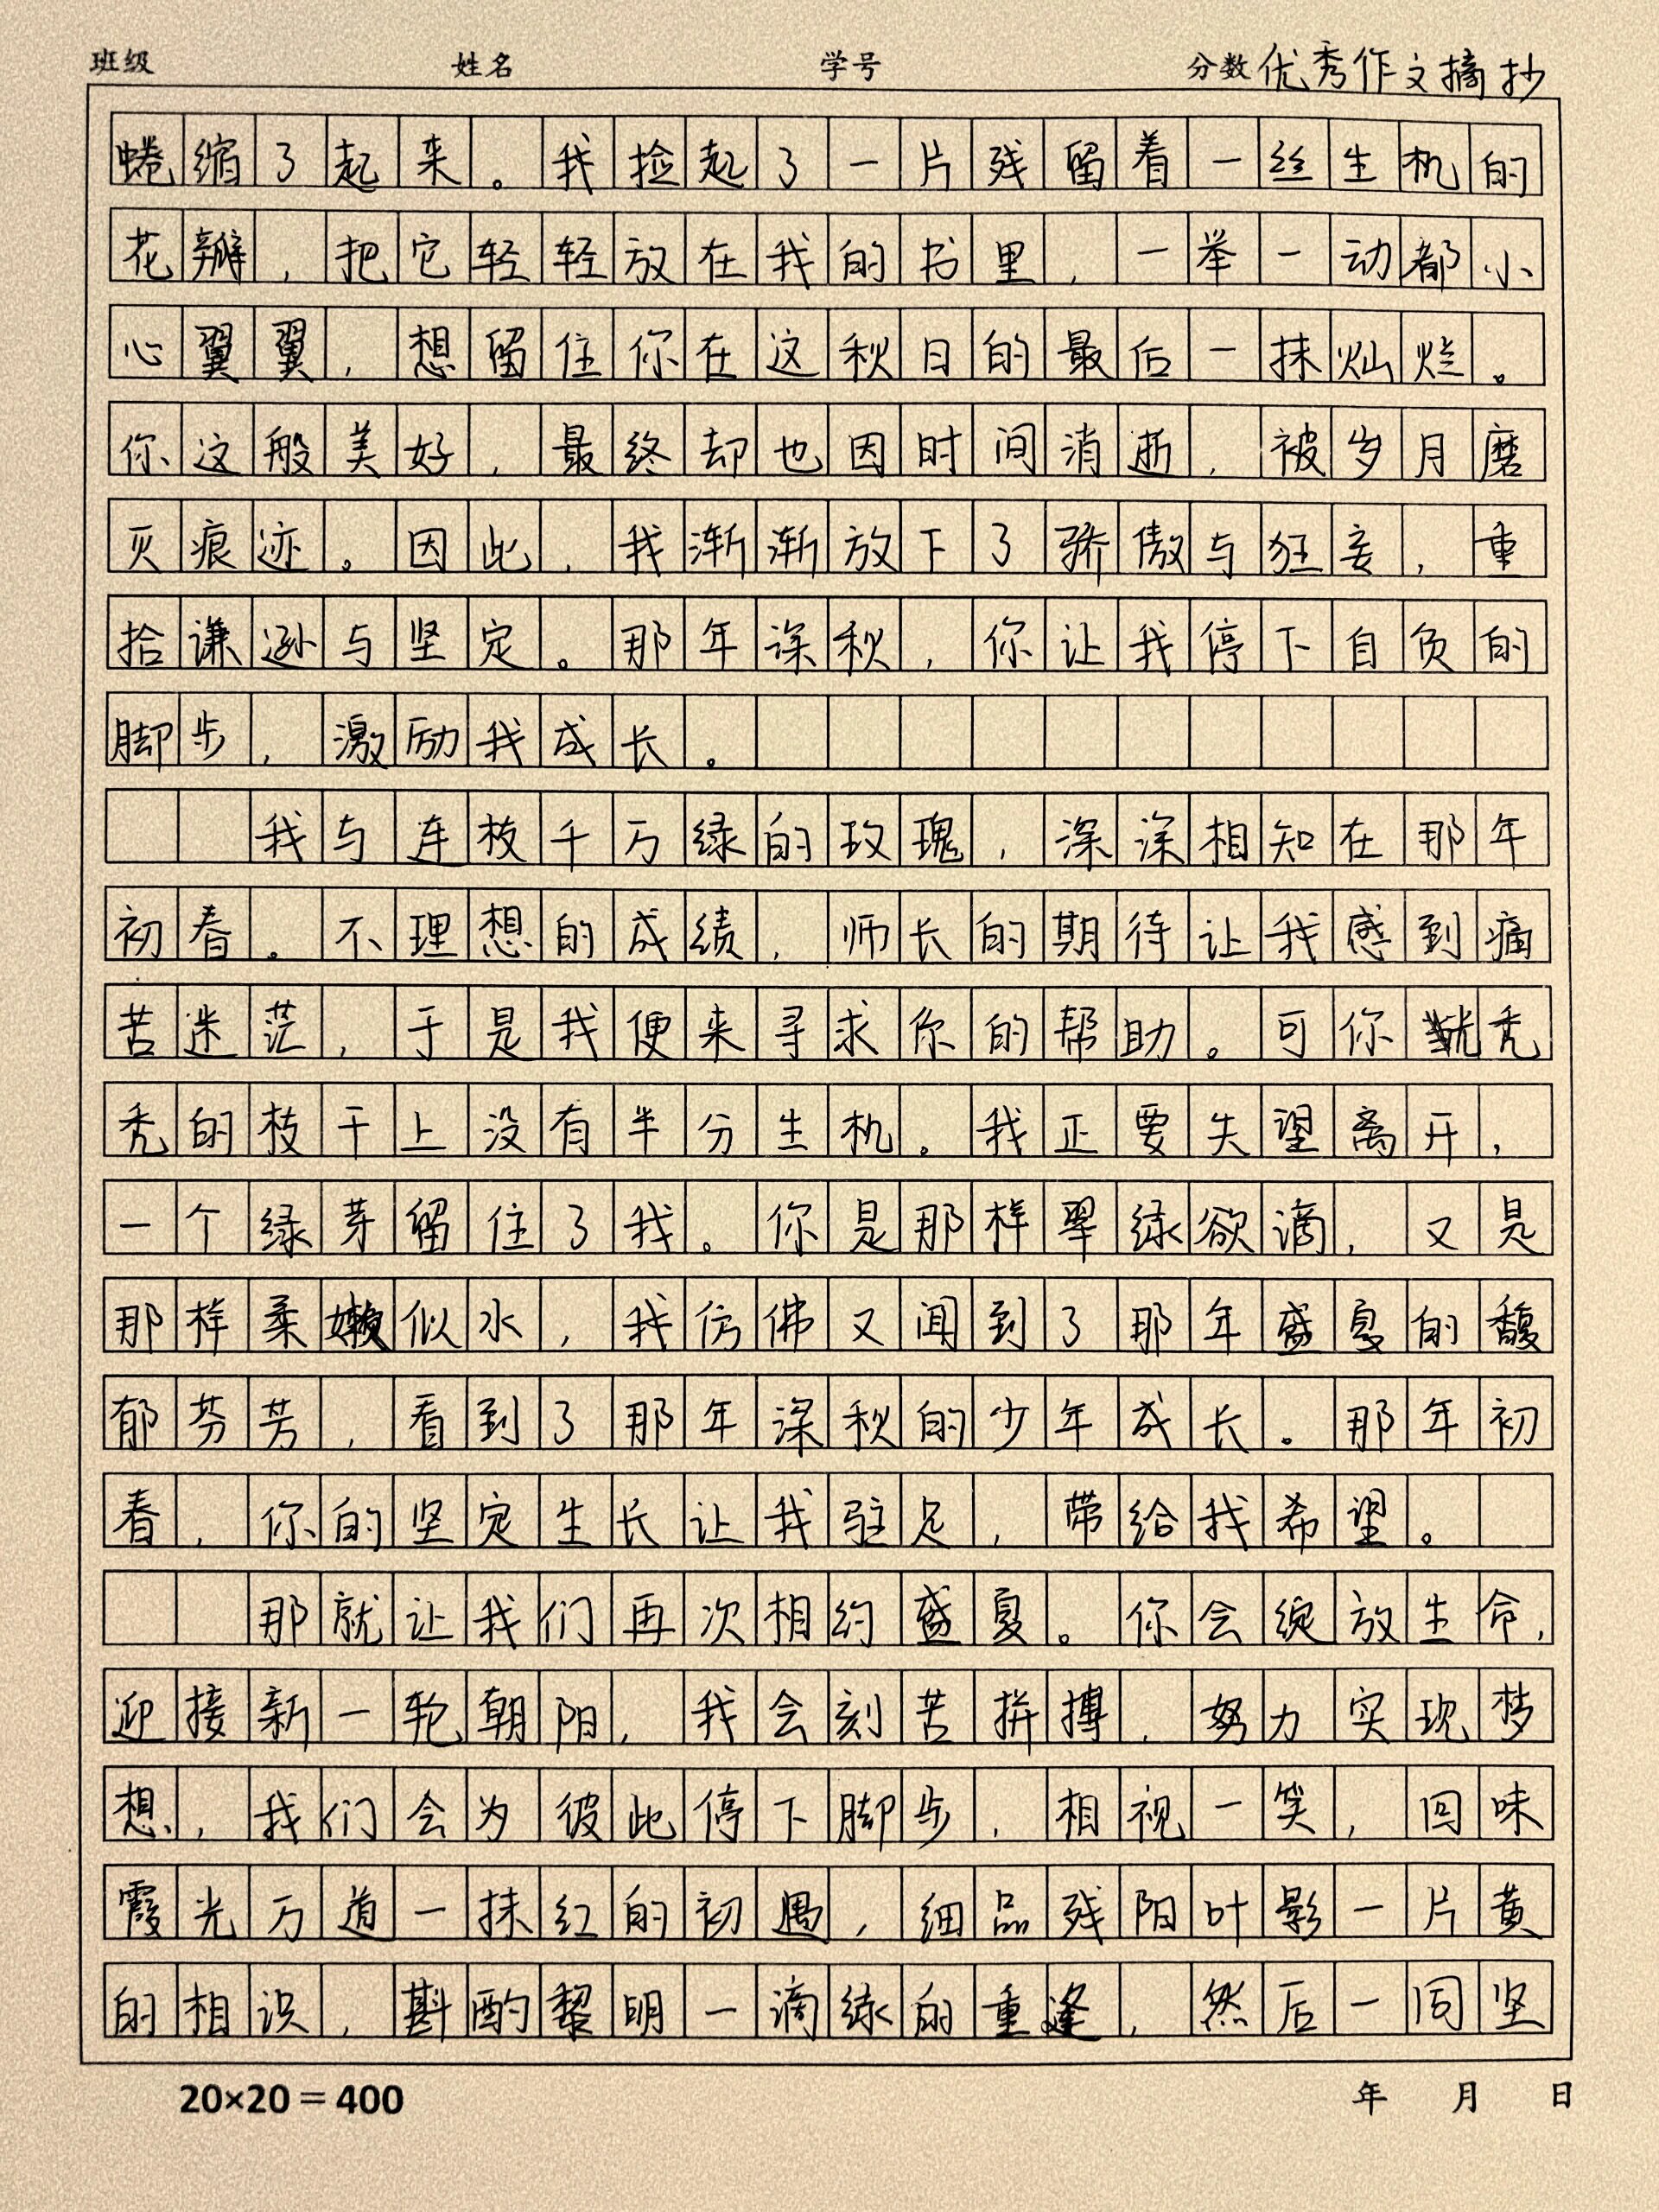 班级 姓名 学号 分数 优秀作文摘抄
蜷缩了起来。我捡起了一片残留着一丝生机的
花瓣，把它轻轻放在我的书里，一举一动都小
心翼翼，想留住你在这秋日的最后一抹灿烂。
你这般美好，最终却也因时间消逝，被岁月磨
灭痕迹。因此，我渐渐放下了骄傲与狂妄，重
拾谦逊与坚定。那年深秋，你让我停下自负的
脚步，激励我成长。
我与连枝千万绿的玫瑰，深深相知在那年
初春。不理想的成绩，师长的期待让我感到痛
苦迷茫，于是我便来寻求你的帮助。可你秃
秃的枝干上没有半分生机。我正要失望离开，
一个绿芽留住了我。你是那样翠绿欲滴，又是
那样柔嫩似水，我仿佛又闻到了那年盛夏的馥
郁芬芳，看到了那年深秋的少年成长。那年初
春，你的坚定生长让我驻足，带给我希望。
那就让我们再次相约盛夏。你会绽放生命，
迎接新一轮朝阳，我会刻苦拼搏，努力实现梦
想，我们会为彼此停下脚步，相视一笑，回味
霞光万道一抹红的初遇，细品残阳叶影一片黄
的相识，斟酌黎明一滴绿的重逢，然后一同坚
20×20＝400 年 月 日